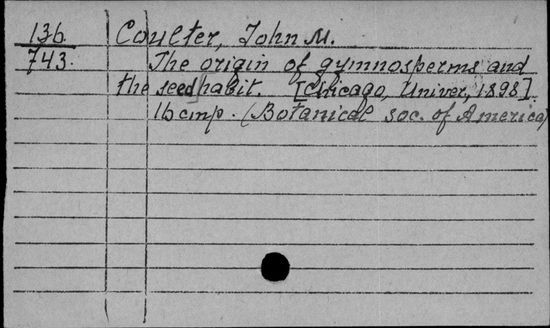 136 Coulter, John M.
743. The origin of gymnosperms and
the seed habit. [Chicago, Univer, 1898]
16 стр. (Botanical soc. of America)